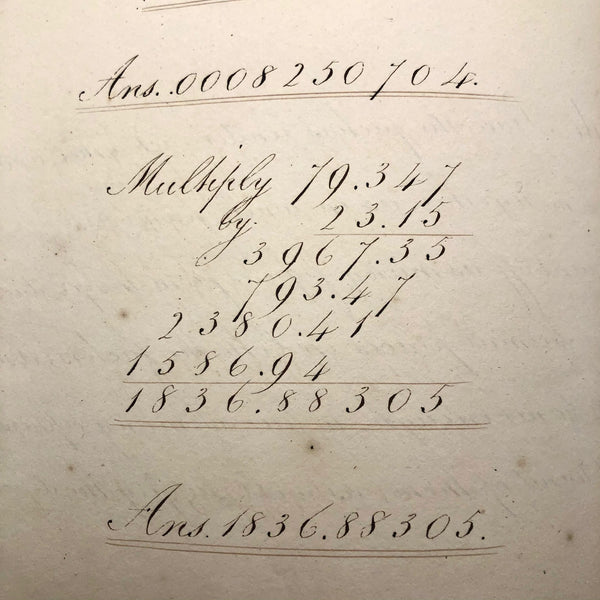 Ans. .0008250704.
Multiply 79.347
by 23.15
3967.35
793.47
2380.41
1586.94
1836.88305
Ans. 1836.88305.